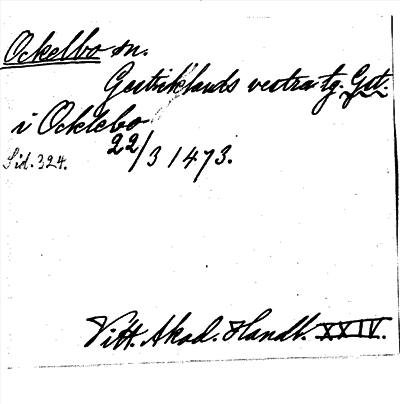 Ockelbo sn.
Gestriklands vestra tg. Gst.
i Ocklebo
22/3 1473.
Sid. 324.
Vitt. Akad. Handl. XXIV.